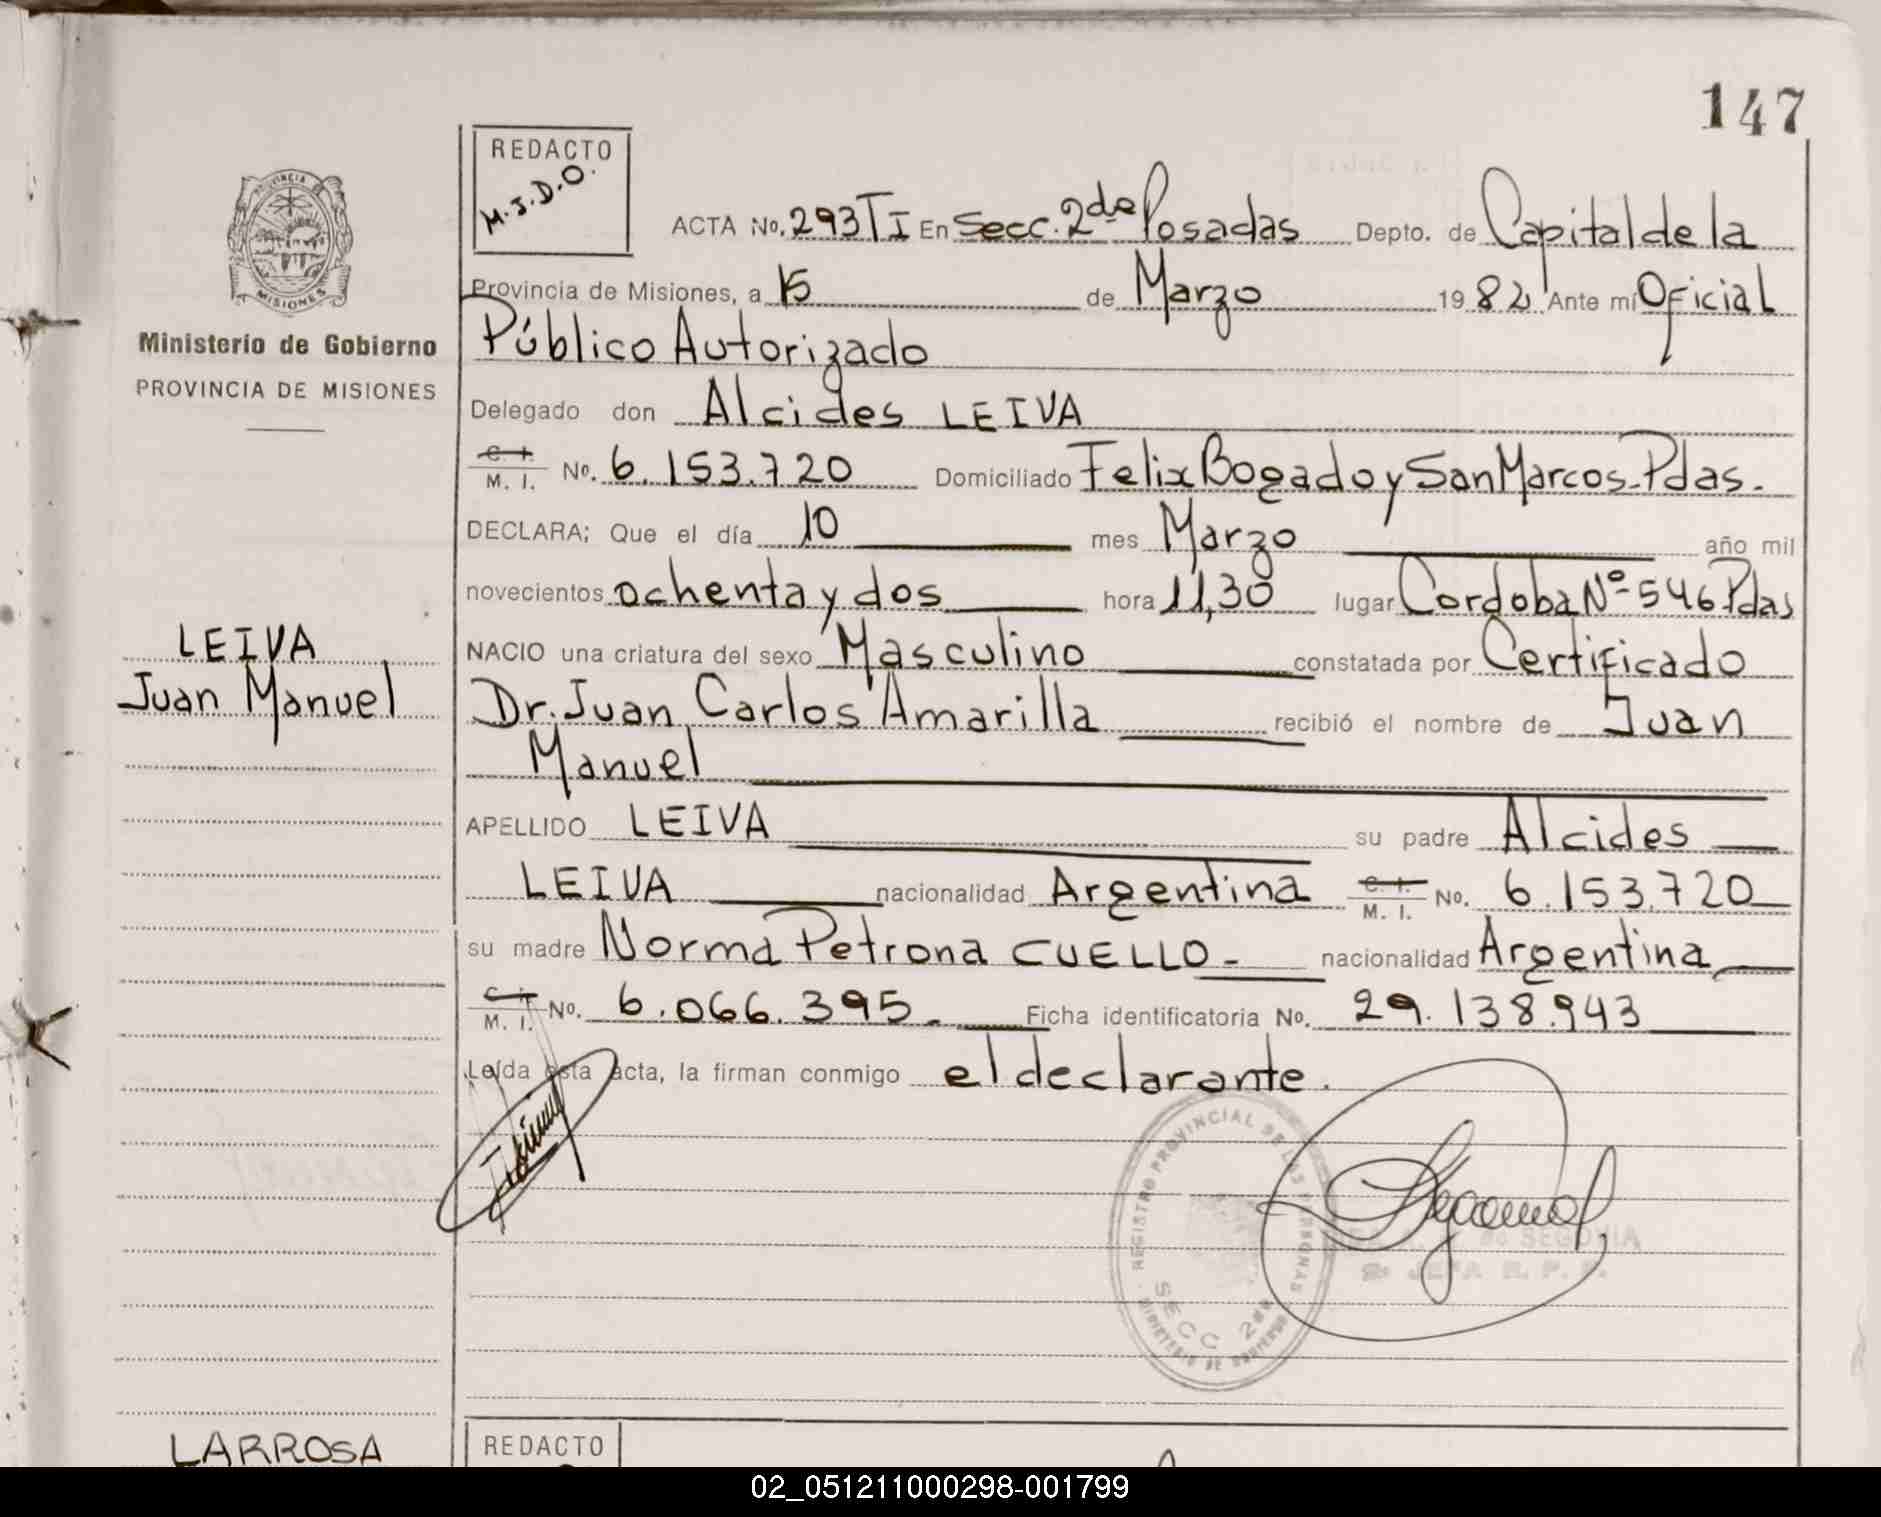 147
REDACTO
M.J.D.O.
PROVINCIA DE
MISIONES
Ministerio de Gobierno
PROVINCIA DE MISIONES
ACTA No. 293 T I En Secc. 2da Posadas Depto. de Capital de la
Provincia de Misiones, a 15 de Marzo 1982 Ante mí Oficial
Público Autorizado
Delegado don Alcides LEIVA
C. I.
M. I. No. 6.153.720 Domiciliado Felix Bogado y San Marcos-Pdas.
DECLARA; Que el día 10 mes Marzo año mil
novecientos ochenta y dos hora 11,30 lugar Cordoba Nº 546 Pdas
LEIVA
Juan Manuel
NACIO una criatura del sexo Masculino constatada por Certificado
Dr. Juan Carlos Amarilla recibió el nombre de Juan
Manuel
APELLIDO LEIVA su padre Alcides
LEIVA nacionalidad Argentina C. I. M. I. No. 6.153.720
su madre Norma Petrona CUELLO - nacionalidad Argentina
C. I.
M. I. No. 6.066.395. Ficha identificatoria No. 29.138.943
Leída esta acta, la firman conmigo el declarante.
REGISTRO PROVINCIAL DE LAS PERSONAS
SECC 2da
MINISTERIO DE GOBIERNO
SEGOVIA
2º JEFA R. P. P.
LARROSA
REDACTO
02_051211000298-001799